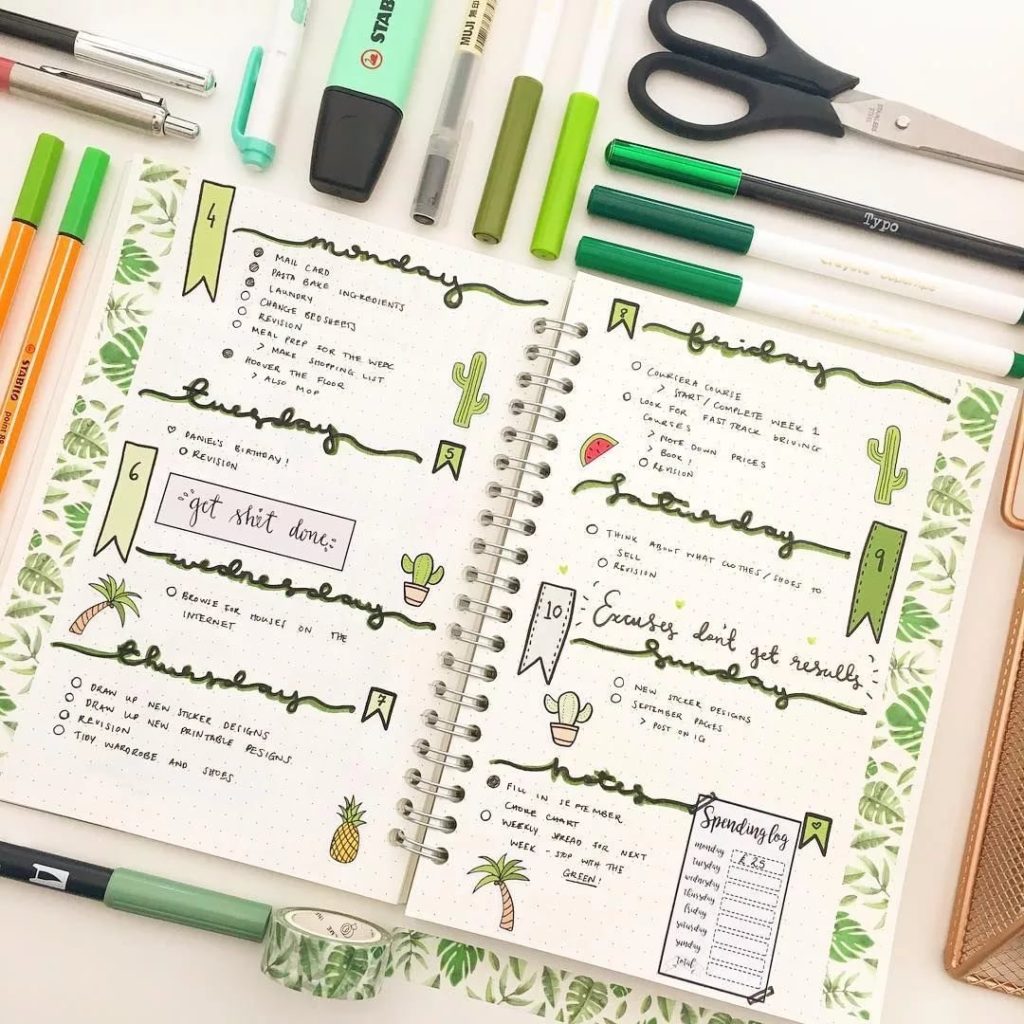 STABILO
MUJI 無印
STAINLESS
STEEL
Typo
STABILO
point 88
4
monday
MAIL CARD
PASTA BAKE INGREDIENTS
LAUNDRY
CHANGE BEDSHEETS
REVISION
MEAL PREP FOR THE WEEK
> MAKE SHOPPING LIST
HOOVER THE FLOOR
> ALSO MOP
tuesday
5
DANIEL'S BIRTHDAY!
REVISION
6
get shit done
wednesday
BROWSE FOR HOUSES ON THE
INTERNET
thursday
7
DRAW UP NEW STICKER DESIGNS
DRAW UP NEW PRINTABLE DESIGNS
REVISION
TIDY WARDROBE AND SHOES
8
friday
COURSERA COURSE
> START/COMPLETE WEEK 1
LOOK FOR FAST TRACK DRIVING
COURSES
> NOTE DOWN PRICES
> BOOK!
REVISION
saturday
9
THINK ABOUT WHAT CLOTHES/SHOES TO
SELL
REVISION
10
Excuses don't get results
sunday
NEW STICKER DESIGNS
SEPTEMBER PAGES
> POST ON IG
notes
FILL IN SEPTEMBER
CHORE CHART
WEEKLY SPREAD FOR NEXT
WEEK - STOP WITH THE
GREEN!
Spending log
monday
tuesday
wednesday
thursday
friday
saturday
sunday
total